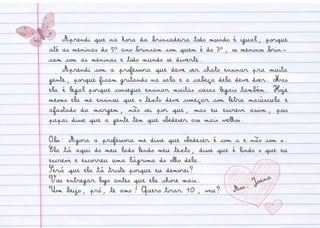 Aprendi que na hora da brincadeira todo mundo é igual, porque
até as meninas do 5º ano brincam com quem é do 3º, os meninos brin-
cam com as meninas e todo mundo se diverte.
Aprendi com a professora que deve ser chato ensinar pra muita
gente, porque ficam gritando na sala e a cabeça dela deve doer. Mas
ela é legal porque consegue ensinar muitas coisas legais também. Hoje
mesmo ela me ensinou que o texto deve começar com letra maiúscula e
afastado da margem, não sei por que, mas eu escrevi assim, pois
papai disse que a gente tem que obedecer aos mais velhos.
Obs: Agora a professora me disse que obedecer é com c e não com s.
Ela tá aqui do meu lado lendo meu texto, disse que é lindo o que eu
escrevi e escorreu uma lágrima do olho dela.
Será que ela tá triste porque eu demorei?
Vou entregar logo antes que ela chore mais.
Um beijo, prô, te amo! Quero tirar 10, viu?
Ass: Joana